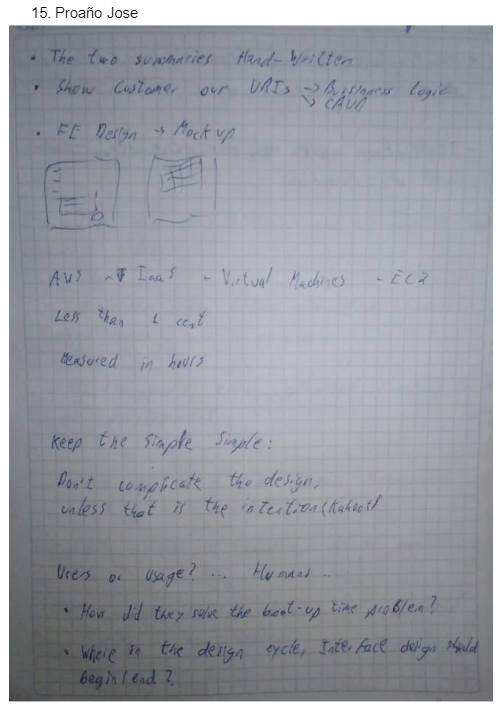 15. Proaño Jose
• The two summaries Hand-Written
• Show Customer our URIs → Bussinness logic
→ CRUD
• FE Design → Mock up
AWS → IaaS - Virtual Machines - EC2
Less than 1 cent
Measured in hours
Keep the simple simple:
Don't complicate the design,
unless that is the intention (Kahoot)
Users or usage? ... Humans ..
• How did they solve the boot-up time problem?
• Where in the design cycle, Interface design should
begin/end?